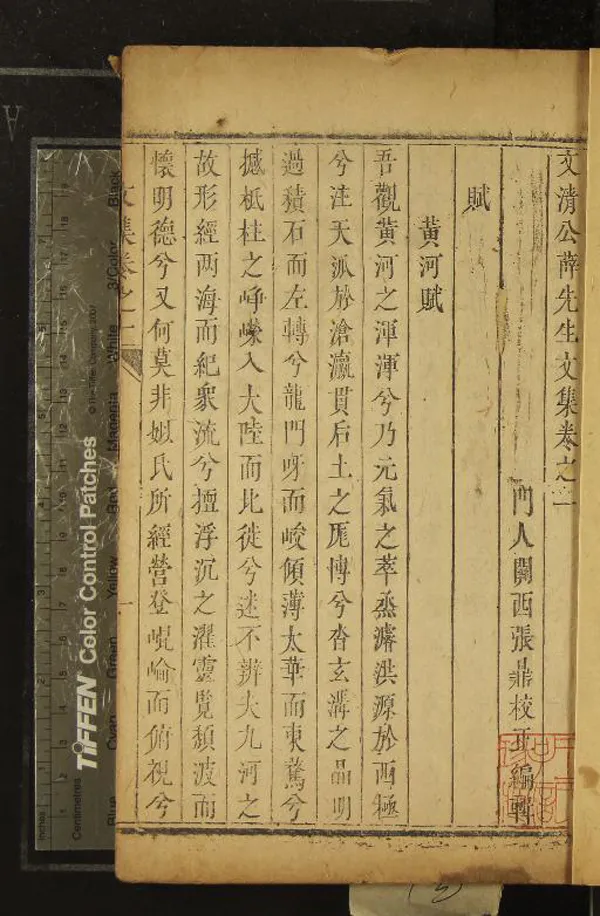 文清公薛先生文集卷之一
門人關西張鼎校正編輯
賦
黃河賦
吾觀黃河之渾渾兮乃元氣之萃烝濬洪源於西極
兮注天派於滄瀛貫后土之庬博兮沓玄溝之晶明
過積石而左轉兮龍門呀而峻傾薄太華而東騖兮
撼砥柱之崢嶸入大陸而北徙兮迷不辨大九河之
故形經两海而紀衆流兮擅浮沉之濯靈覧頽波而
懷明德兮又何莫非姒氏所經營登崐崘而俯視兮
文集卷之一
一
TIFFEN Color Control Patches
© The Tiffen Company, 2007
Centimetres
Inches
Blue
Cyan
Green
Yellow
Red
Magenta
White
3/Color
Black